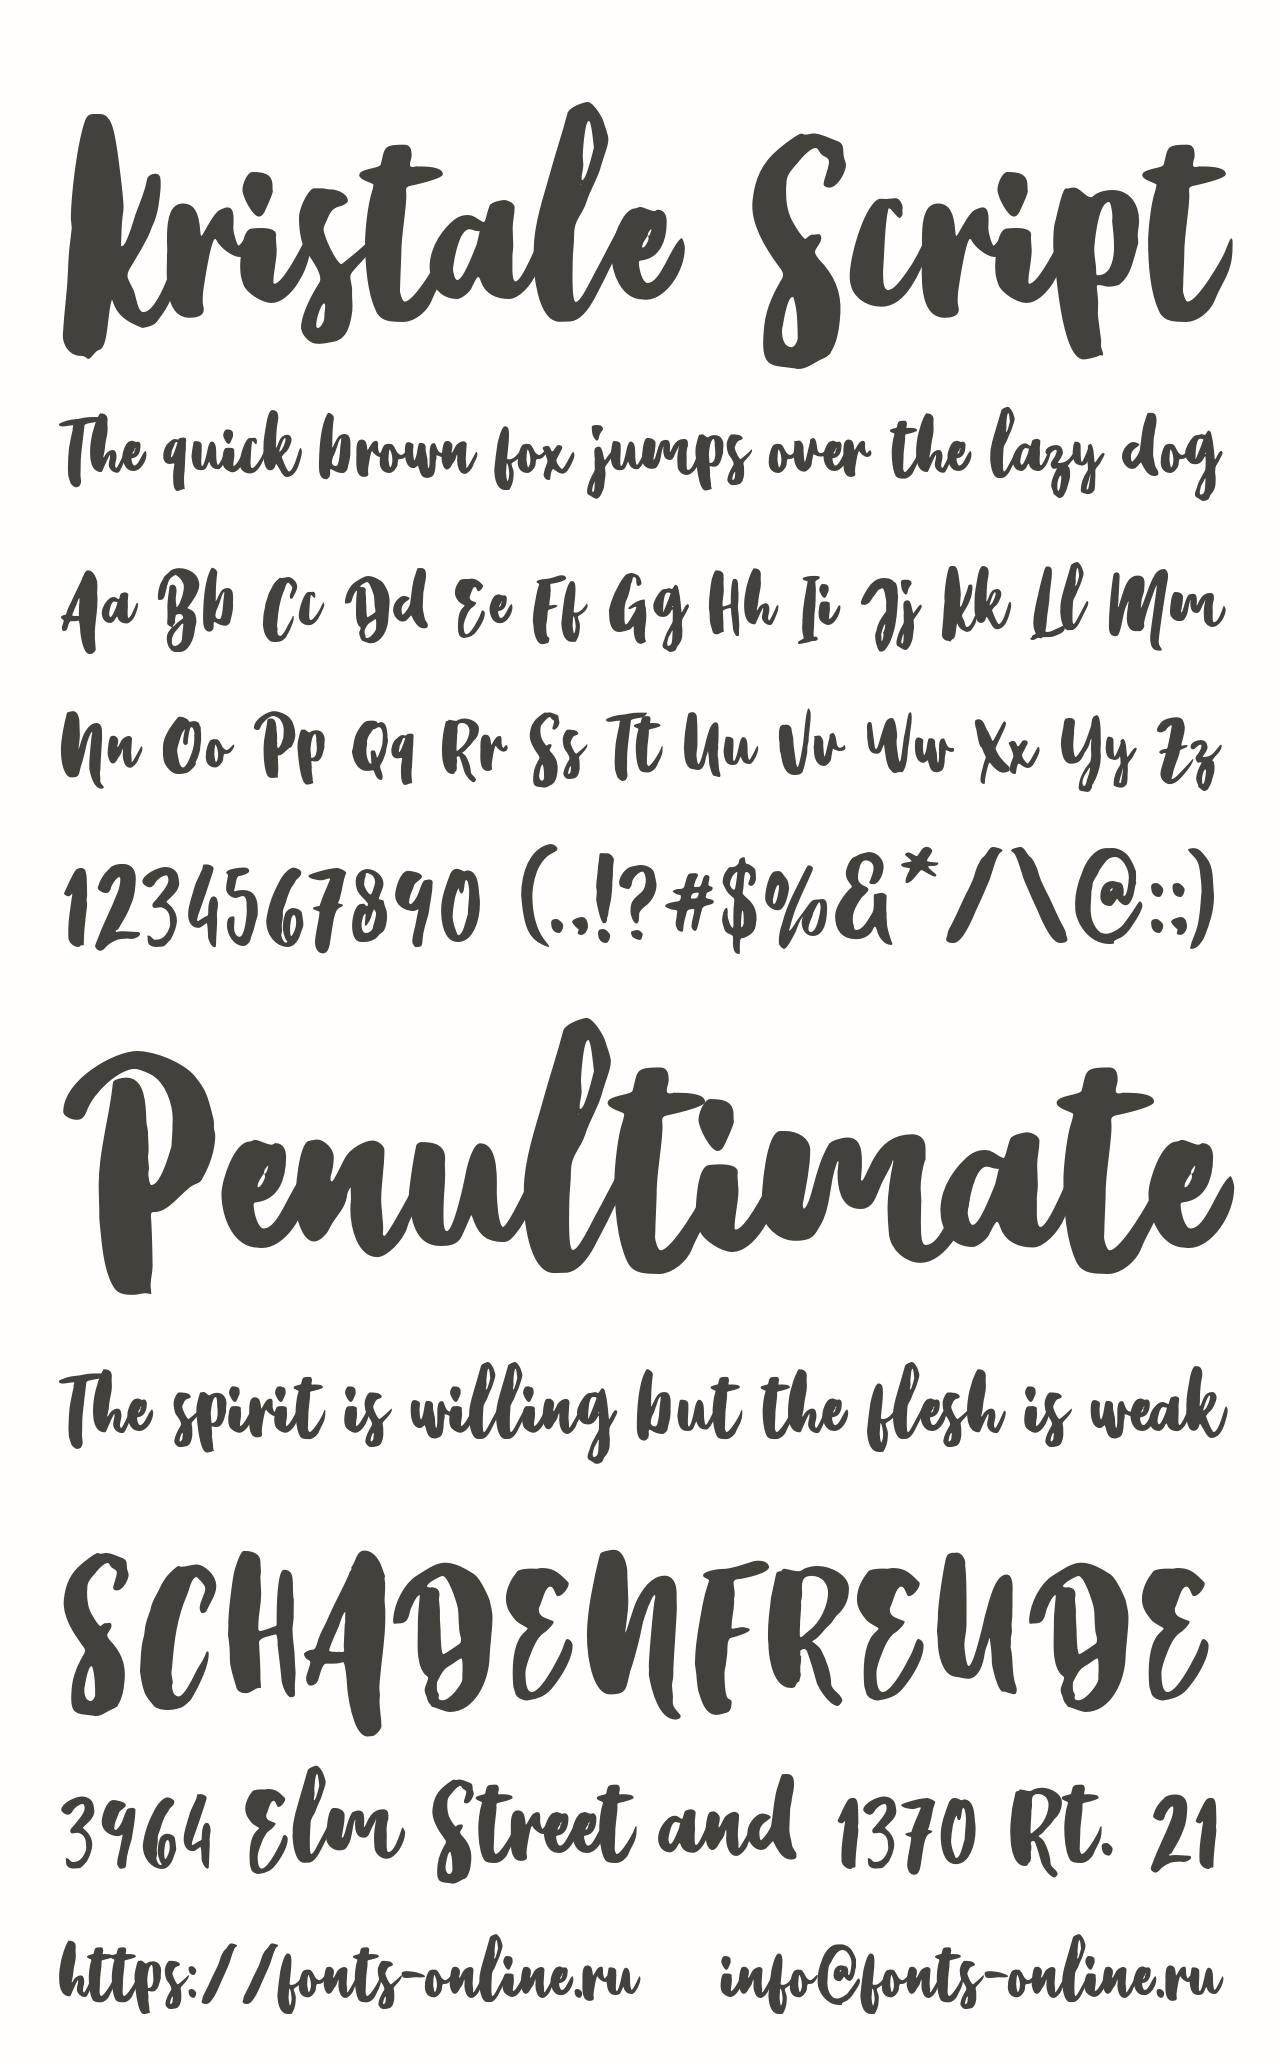 Kristale Script
The quick brown fox jumps over the lazy dog
Aa Bb Cc Dd Ee Ff Gg Hh Ii Jj Kk Ll Mm
Nn Oo Pp Qq Rr Ss Tt Uu Vv Ww Xx Yy Zz
1234567890 (.,!?#$%&*/\@:;)
Penultimate
The spirit is willing but the flesh is weak
SCHADENFREUDE
3964 Elm Street and 1370 Rt. 21
https://fonts-online.ru info@fonts-online.ru